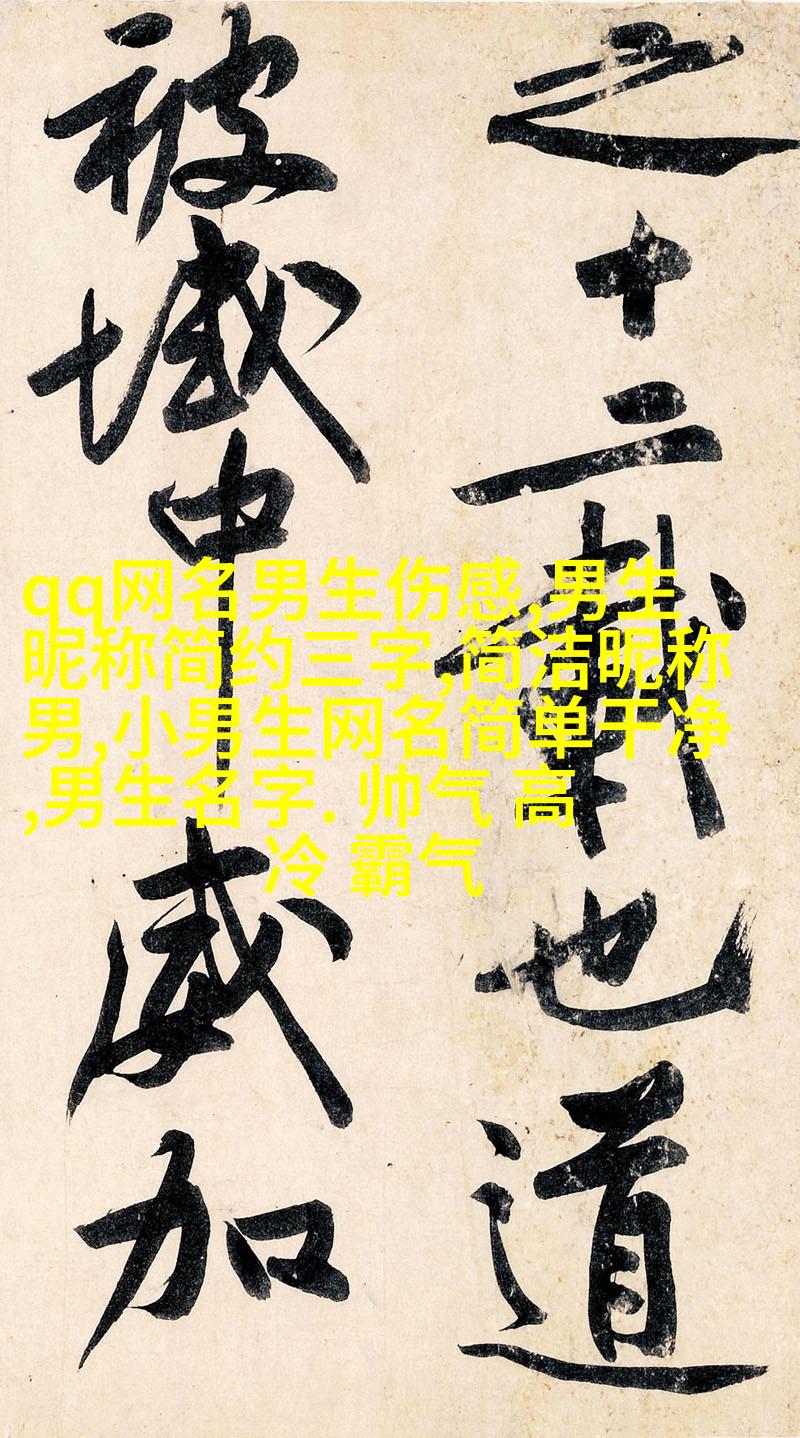 之十二載也道
被域中威加
qq网名男生伤感,男生
昵称简约三字,简洁昵称
男,小男生网名简单干净
,男生名字. 帅气 高
冷 霸气